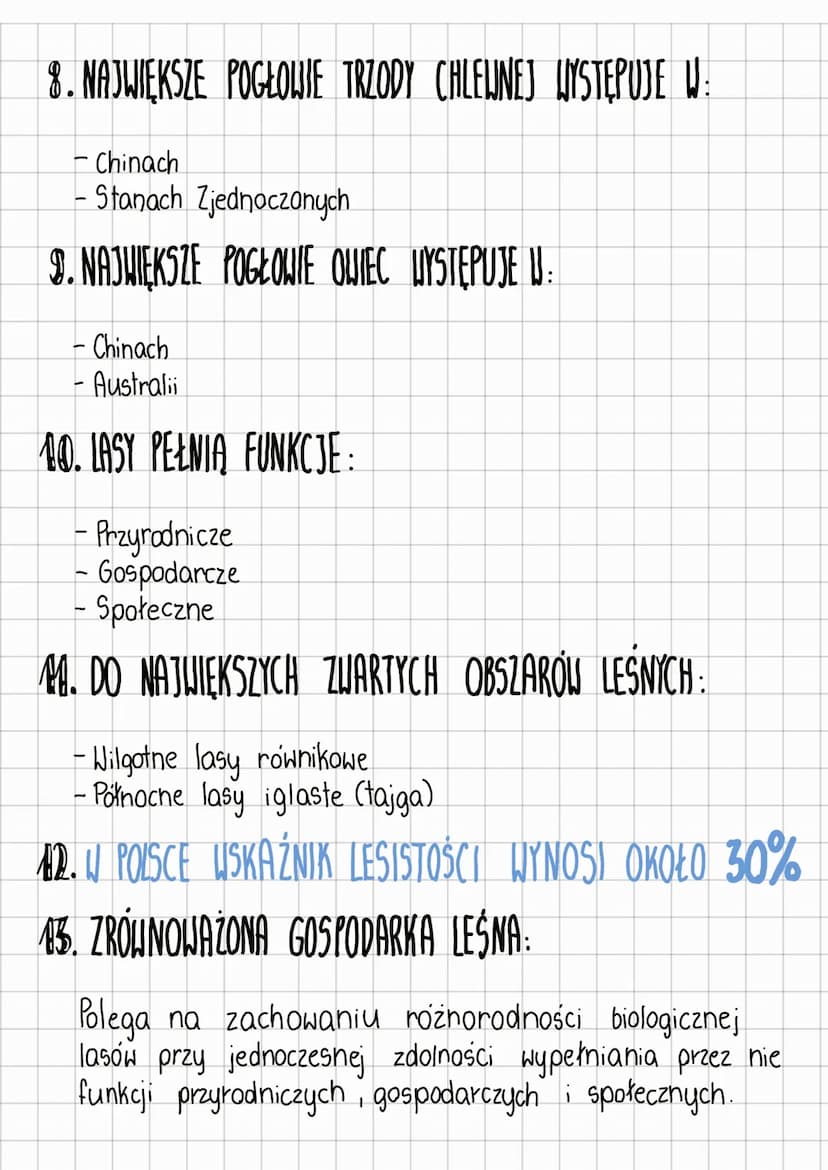 8. NAJWIĘKSZE POGŁOWIE TRZODY CHLEWNEJ WYSTĘPUJE W:
- Chinach
- Stanach Zjednoczonych
9. NAJWIĘKSZE POGŁOWIE OWIEC WYSTĘPUJE W:
- Chinach
- Australii
10. LASY PEŁNIĄ FUNKCJE:
- Przyrodnicze
- Gospodarcze
- Społeczne
11. DO NAJWIĘKSZYCH ZWARTYCH OBSZARÓW LEŚNYCH:
- Wilgotne lasy równikowe
- Północne lasy iglaste (tajga)
12. W POLSCE WSKAŹNIK LESISTOŚCI WYNOSI OKOŁO 30%
13. ZRÓWNOWAŻONA GOSPODARKA LEŚNA:
Polega na zachowaniu różnorodności biologicznej
lasów przy jednoczesnej zdolności wypełniania przez nie
funkcji przyrodniczych, gospodarczych i społecznych.